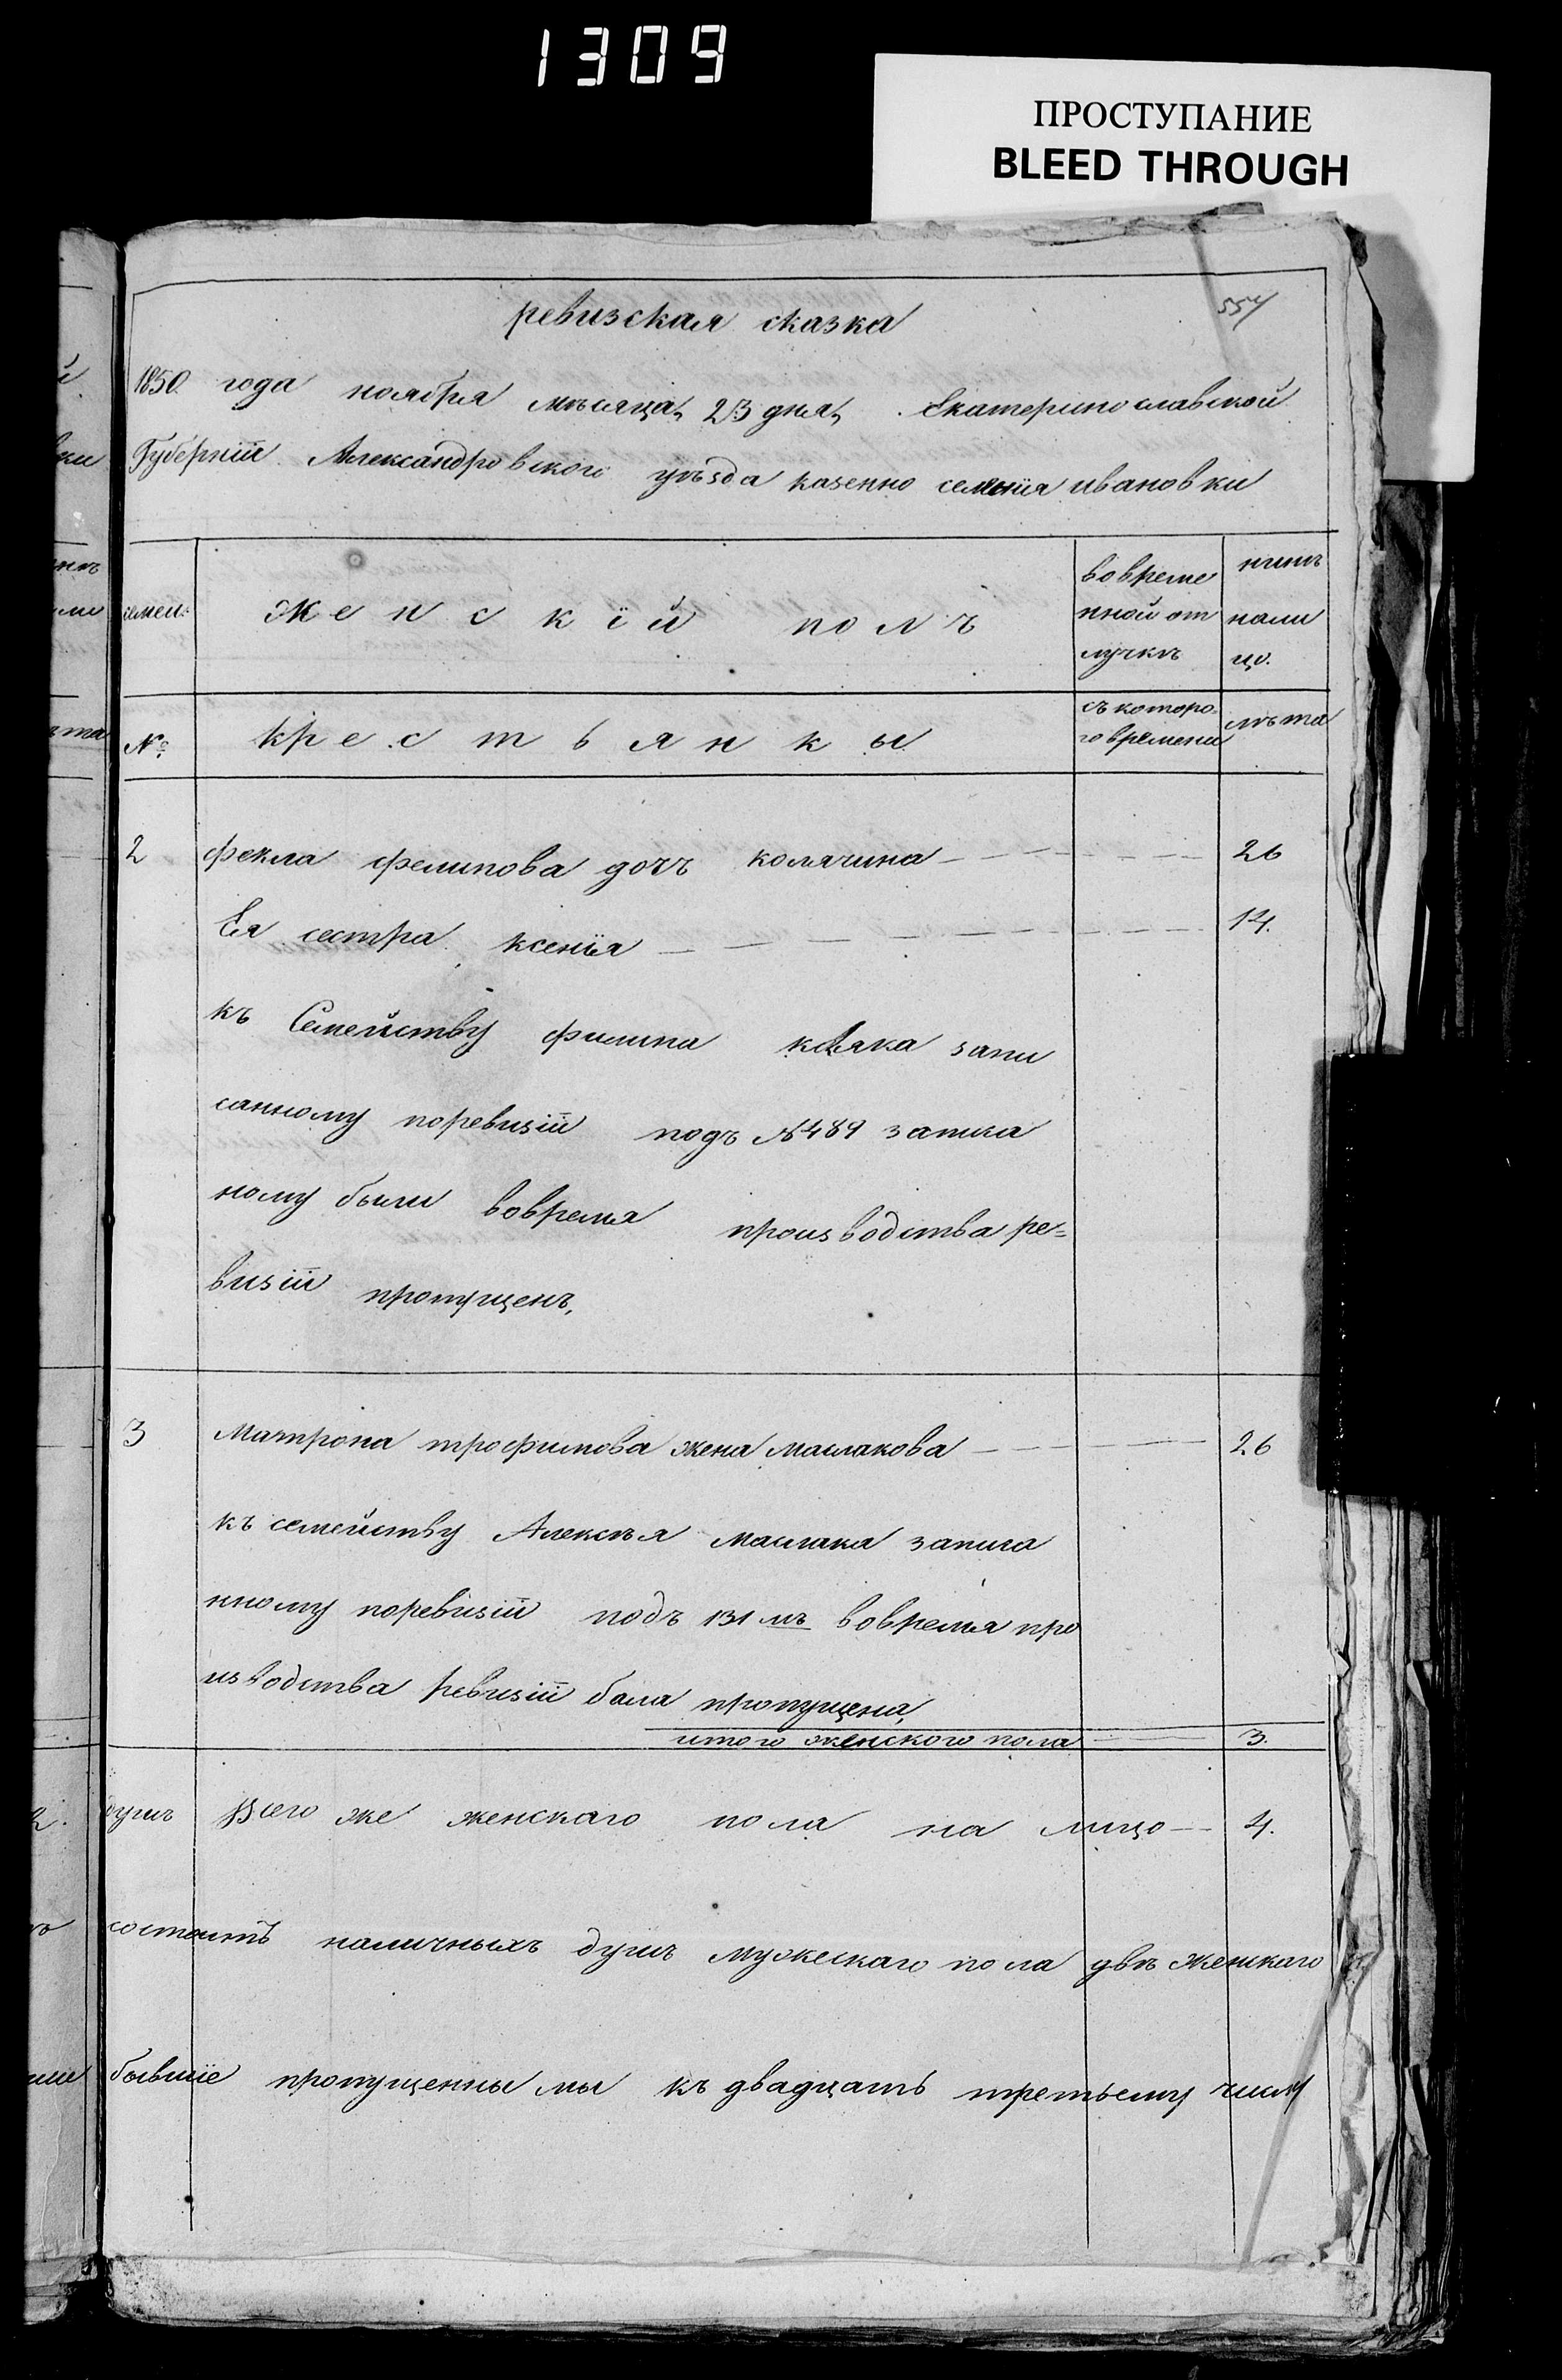 1309
ПРОСТУПАНИЕ
BLEED THROUGH
554
ревизская сказка
1850 года ноября мѣсяца, 23 дня, Екатеринославской
Губерніи Александровского уѣзда казенно селенія ивановки
семей:
женскій полъ
вовреме
нной от
лучкѣ
нынѣ
нали
цо.
№
крестьянки
съ которо-
го времени
лѣта
2 фекла фелипова дочъ колячина 26
Ея сестра ксенія 14.
къ Семейству филипа кляка запи
санному поревизіи подъ №489
ному были вовремя производства ре=
визіи пропущенъ,
3 Матрона трофимова жена маслакова 26
къ семейству Алексѣя маслака записа
нному поревизіи подъ 131 мъ вовремя про
изводства ревизіи бала пропущена,
итого женского пола 3.
душъ Всего же женскаго пола на лицо 4.
состоитъ наличныхъ душъ мужескаго пола двѣ женскаго
бывшіе пропущенны мы къ двадцать третьему числу